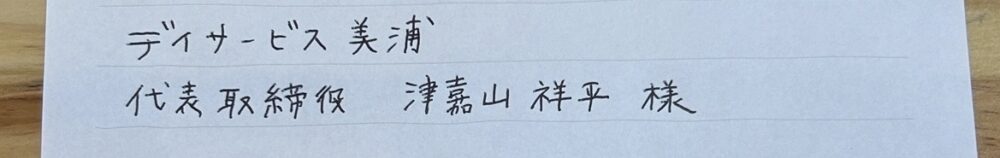 デイサービス 美浦
代表取締役 津嘉山 祥平 様